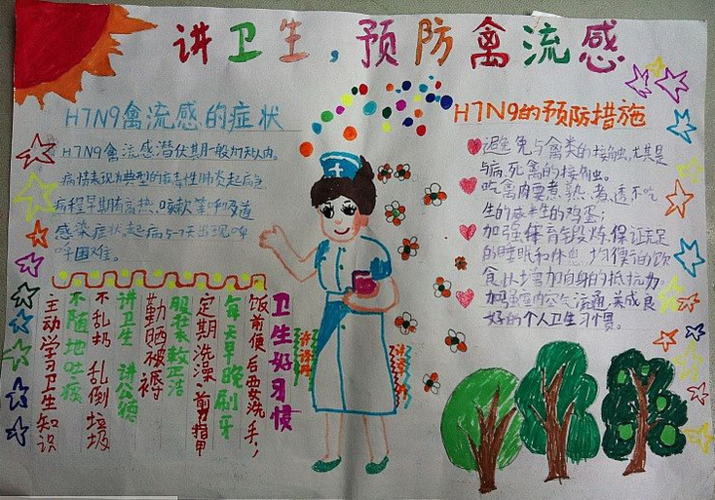 讲卫生,预防禽流感
H7N9禽流感的症状
H7N9禽流感潜伏期一般为7天以内。
病情表现为典型的病毒性肺炎起病急
病程早期有高热、咳嗽等呼吸道
感染症状,起病5-7天出现呼
吸困难。
H7N9的预防措施
避免与禽类的接触,尤其是
与病、死禽的接触。
吃禽肉要煮熟、煮透不吃
生的或半生的鸡蛋;
加强体育锻炼,保证充足
的睡眠和休息,均衡的饮
食状增加自身的抵抗力
加强室内空气流通,养成良
好的个人卫生习惯。
卫生好习惯
饭前便后要洗手,
每天早晚刷牙
定期洗澡 剪指甲
服装整洁
勤晒被褥
讲卫生 讲公德
不乱扔 乱倒垃圾
不随地吐痰
主动学习卫生知识